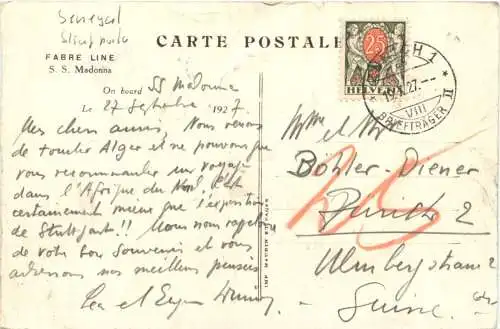 Senegal
CARTE POSTALE
FABRE LINE
S. S. Madonna
On board SS Madonna
Le 27 Septembre 1927.
Mes chers amis, Nous venons
de toucher Alger et ne pouvons que
vous recommander un voyage
dans l'Afrique du Nord, c'est
certainement mieux que l'exposition
de Stuttgart!! Nous nous rappelons
de votre bon souvenir et vous
adressons nos meilleurs pensées
Lea et Eugen
IMP
25
HELVETIA
1
27.
VIII
BRIEFTRÄGER II
Mme et Mr
Bohler-Diener
Zurich 2
Ulmbergstrasse 2
Suisse
25